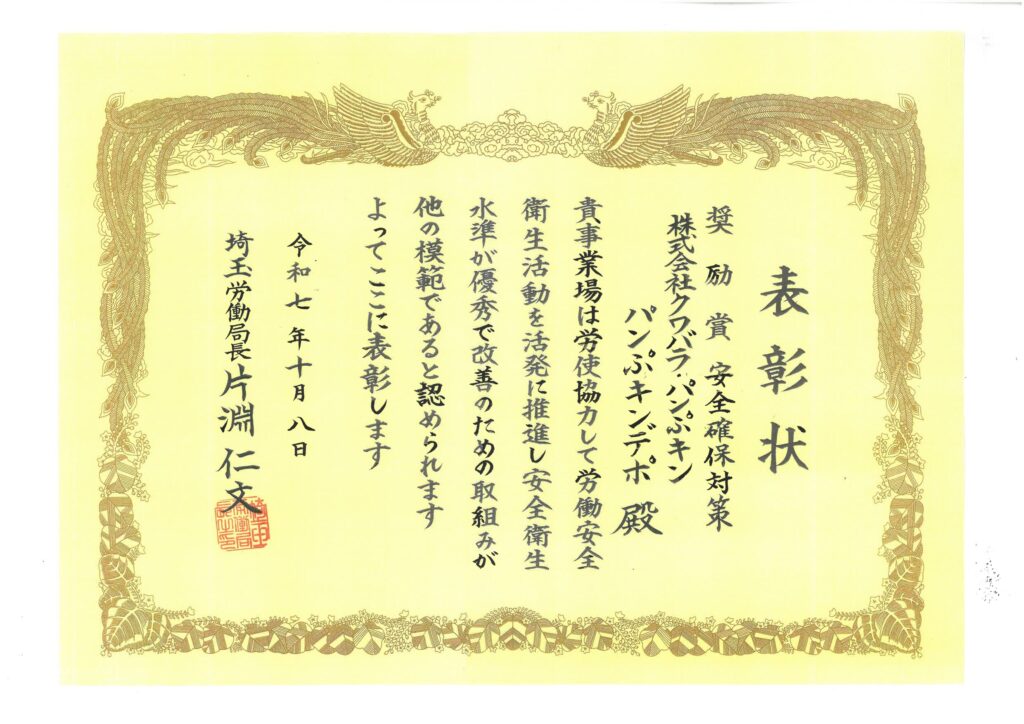 表彰状
奨励賞 安全確保対策
株式会社クワバラ・パンぷキン
パンぷキンデポ 殿
貴事業場は労使協力して労働安全
衛生活動を活発に推進し安全衛生
水準が優秀で改善のための取組みが
他の模範であると認められます
よってここに表彰します
令和七年十月八日
埼玉労働局長 片淵仁文